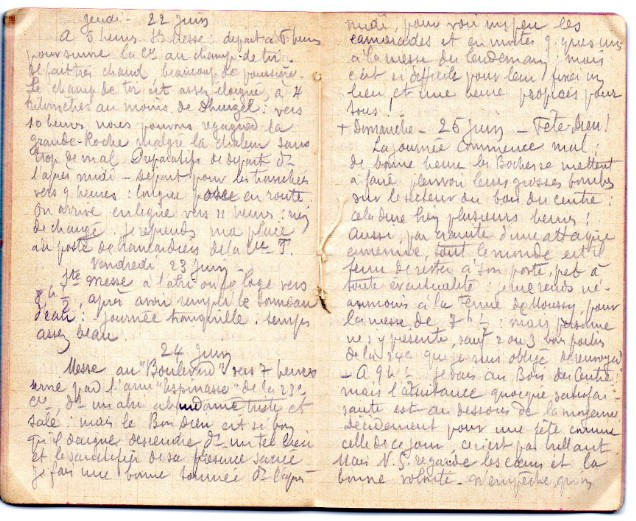 Jeudi - 22 juin
A 5 heures Ste Messe : départ à 6 heures
pour suivre la Cie au champ-de-tir.
Il fait très chaud, beaucoup de poussière.
Le champ de tir est assez éloigné, à 7
kilomètres au moins de : vers
10 heures nous pouvons regagner la
grande-Roche malgré la chaleur sans
trop de mal. Préparatifs de départ ds
l'après midi - Départ pour les tranchées
vers 9 heures : longue pose en route.
On arrive en ligne vers 11 heures : rien
de changé. Je reprends ma place
au poste de brancardiers de la Cie
Vendredi 23 juin -
Ste messe à l'abri où je loge vers
8h ½, après avoir rempli le tonneau
d'eau : Journée tranquille. Temps
assez beau.
24 juin
Messe au "Boulevard" vers 7 heures
servie par l'ami "Espinasse" de la 23e
Cie, ds un abri triste et
sale : mais le Bon Dieu est si bon
qu'il daigne descendre ds un tel lieu
et le sanctifier de sa présence sacrée
Je fais une bonne tournée ds l'après
midi, pour voir un peu les
camarades et en inviter q.ques uns
à la messe du lendemain : mais
c'est si difficile pour leur fixer un
lieu et une heure propices pour
tous !
+ Dimanche - 25 juin - Fête-Dieu !
La journée commence mal ;
de bonne heure les Boches se mettent
à faire pleuvoir leurs grosses bombes
sur le secteur du bois du centre :
cela dure plusieurs heures !
Aussi, par crainte d'une attaque
ennemie, tout le monde est-il
tenu de rester à son poste, prêt à
toute éventualité : je me rends né-
anmoins à la ferme de Moussy, pour
la messe de 7h ½ : mais personne
ne s'y présente, sauf 2 ou 3 bons poilus
de la 24e que je suis obligé de renvoyer
- A 9h ½ je vais au Bois du Centre :
mais l'assistance quoique satisfai-
sante est au dessous de la moyenne
décidément pour une fête comme
celle de ce jour, ceci n'est pas brillant
Mais N. S. regarde les cœurs et la
bonne volonté. N'empêche, qu'on